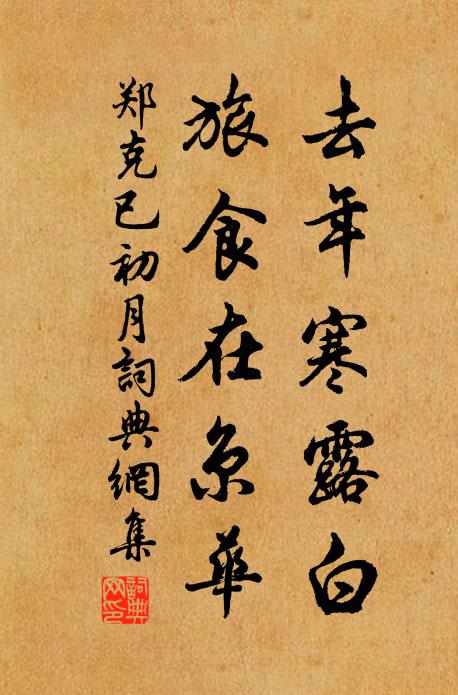 去年寒露白
旅食在京華
郑克已初月詞典網集
詞典网印